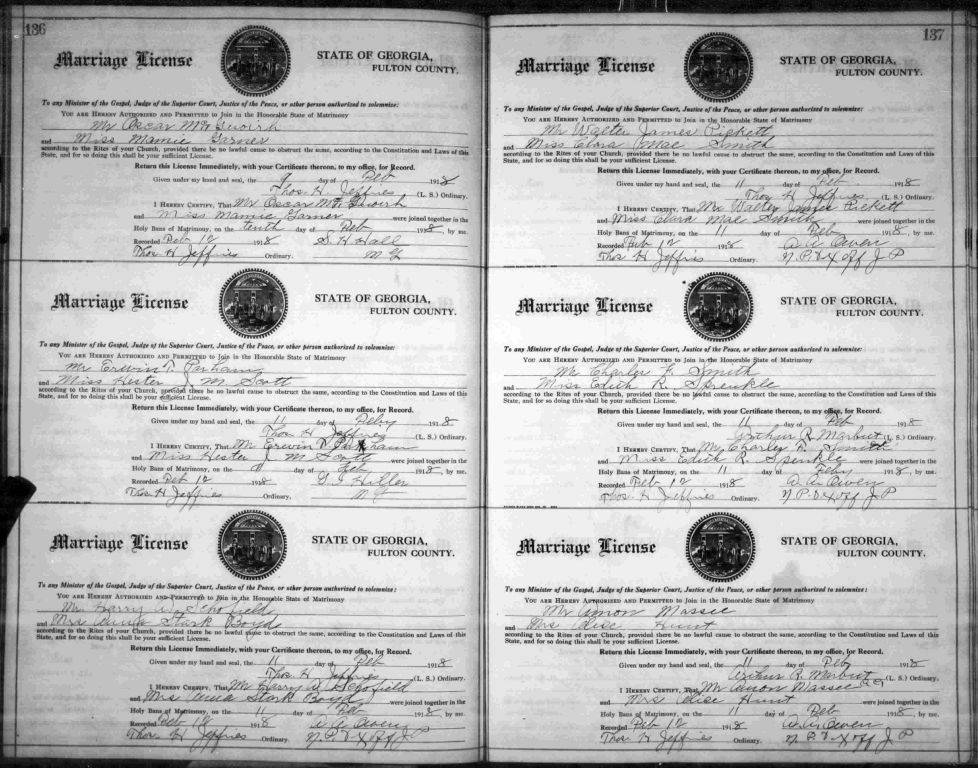 136
Marriage License
STATE OF GEORGIA,
FULTON COUNTY.
To any Minister of the Gospel, Judge of the Superior Court, Justice of the Peace, or other person authorized to solemnize:
You are Hereby Authorized and Permitted to Join in the Honorable State of Matrimony
Mr Oscar
and Miss Mamie Garner
according to the Rites of your Church, provided there be no lawful cause to obstruct the same, according to the Constitution and Laws of this
State, and for so doing this shall be your sufficient License.
Return this License Immediately, with your Certificate thereon, to my office, for Record.
Given under my hand and seal, the 9 day of Feb 1918
Thos. H. Jeffries (L. S.) Ordinary.
I Hereby Certify, That Mr Oscar
and Miss Mamie Garner were joined together in the
Holy Bans of Matrimony, on the tenth day of Feb 1918, by me.
Recorded Feb 12 1918 S. H. Hall
Thos H Jeffries Ordinary. M G
Marriage License
STATE OF GEORGIA,
FULTON COUNTY.
To any Minister of the Gospel, Judge of the Superior Court, Justice of the Peace, or other person authorized to solemnize:
You are Hereby Authorized and Permitted to Join in the Honorable State of Matrimony
Mr Erwin T. Parham
and Miss Hester J M Scott
according to the Rites of your Church, provided there be no lawful cause to obstruct the same, according to the Constitution and Laws of this
State, and for so doing this shall be your sufficient License.
Return this License Immediately, with your Certificate thereon, to my office, for Record.
Given under my hand and seal, the 11 day of Feby 1918
Thos H Jeffries (L. S.) Ordinary.
I Hereby Certify, That Mr Erwin T. Parham
and Miss Hester J M Scott were joined together in the
Holy Bans of Matrimony, on the 11 day of Feb 1918, by me.
Recorded Feb 12 1918
Thos H Jeffries Ordinary. M G
Marriage License
STATE OF GEORGIA,
FULTON COUNTY.
To any Minister of the Gospel, Judge of the Superior Court, Justice of the Peace, or other person authorized to solemnize:
You are Hereby Authorized and Permitted to Join in the Honorable State of Matrimony
Mr Harry W. Schofield
and Mrs Anna Stark Boyd
according to the Rites of your Church, provided there be no lawful cause to obstruct the same, according to the Constitution and Laws of this
State, and for so doing this shall be your sufficient License.
Return this License Immediately, with your Certificate thereon, to my office, for Record.
Given under my hand and seal, the 11 day of Feb 1918
Thos H Jeffries (L. S.) Ordinary.
I Hereby Certify, That Mr Harry W Schofield
and Mrs Anna Stark Boyd were joined together in the
Holy Bans of Matrimony, on the 11 day of Feb 1918, by me.
Recorded Feb 12 1918 A. A. Owen
Thos H Jeffries Ordinary. N. P. & Ex off J P
137
Marriage License
STATE OF GEORGIA,
FULTON COUNTY.
To any Minister of the Gospel, Judge of the Superior Court, Justice of the Peace, or other person authorized to solemnize:
You are Hereby Authorized and Permitted to Join in the Honorable State of Matrimony
Mr Walter James Pickett
and Miss Clara Mae Smith
according to the Rites of your Church, provided there be no lawful cause to obstruct the same, according to the Constitution and Laws of this
State, and for so doing this shall be your sufficient License.
Return this License Immediately, with your Certificate thereon, to my office, for Record.
Given under my hand and seal, the 11 day of Feb 1918
Thos H Jeffries (L. S.) Ordinary.
I Hereby Certify, That Mr Walter James Pickett
and Miss Clara Mae Smith were joined together in the
Holy Bans of Matrimony, on the 11 day of Feb 1918, by me.
Recorded Feb 12 1918 A. A. Owen
Thos H Jeffries Ordinary. N. P. & Ex off J P
Marriage License
STATE OF GEORGIA,
FULTON COUNTY.
To any Minister of the Gospel, Judge of the Superior Court, Justice of the Peace, or other person authorized to solemnize:
You are Hereby Authorized and Permitted to Join in the Honorable State of Matrimony
Mr Charley F. Smith
and Miss Edith R. Sprenkle
according to the Rites of your Church, provided there be no lawful cause to obstruct the same, according to the Constitution and Laws of this
State, and for so doing this shall be your sufficient License.
Return this License Immediately, with your Certificate thereon, to my office, for Record.
Given under my hand and seal, the 11 day of Feb 1918
Arthur R. Marbut (L. S.) Ordinary.
I Hereby Certify, That Mr Charley F. Smith
and Miss Edith R. Sprenkle were joined together in the
Holy Bans of Matrimony, on the 11 day of Feby 1918, by me.
Recorded Feb 12 1918 A. A. Owen
Thos. H Jeffries Ordinary. N. P. & Ex off J P
Marriage License
STATE OF GEORGIA,
FULTON COUNTY.
To any Minister of the Gospel, Judge of the Superior Court, Justice of the Peace, or other person authorized to solemnize:
You are Hereby Authorized and Permitted to Join in the Honorable State of Matrimony
Mr Amon Massee
and Mrs Elise Hunt
according to the Rites of your Church, provided there be no lawful cause to obstruct the same, according to the Constitution and Laws of this
State, and for so doing this shall be your sufficient License.
Return this License Immediately, with your Certificate thereon, to my office, for Record.
Given under my hand and seal, the 11 day of Feby 1918
Arthur R. Marbut (L. S.) Ordinary.
I Hereby Certify, That Mr Amon Massee
and Mrs Elise Hunt were joined together in the
Holy Bans of Matrimony, on the 11 day of Feb 1918, by me.
Recorded Feb 12 1918 A. A. Owen
Thos H Jeffries Ordinary. N. P. & Ex off J P